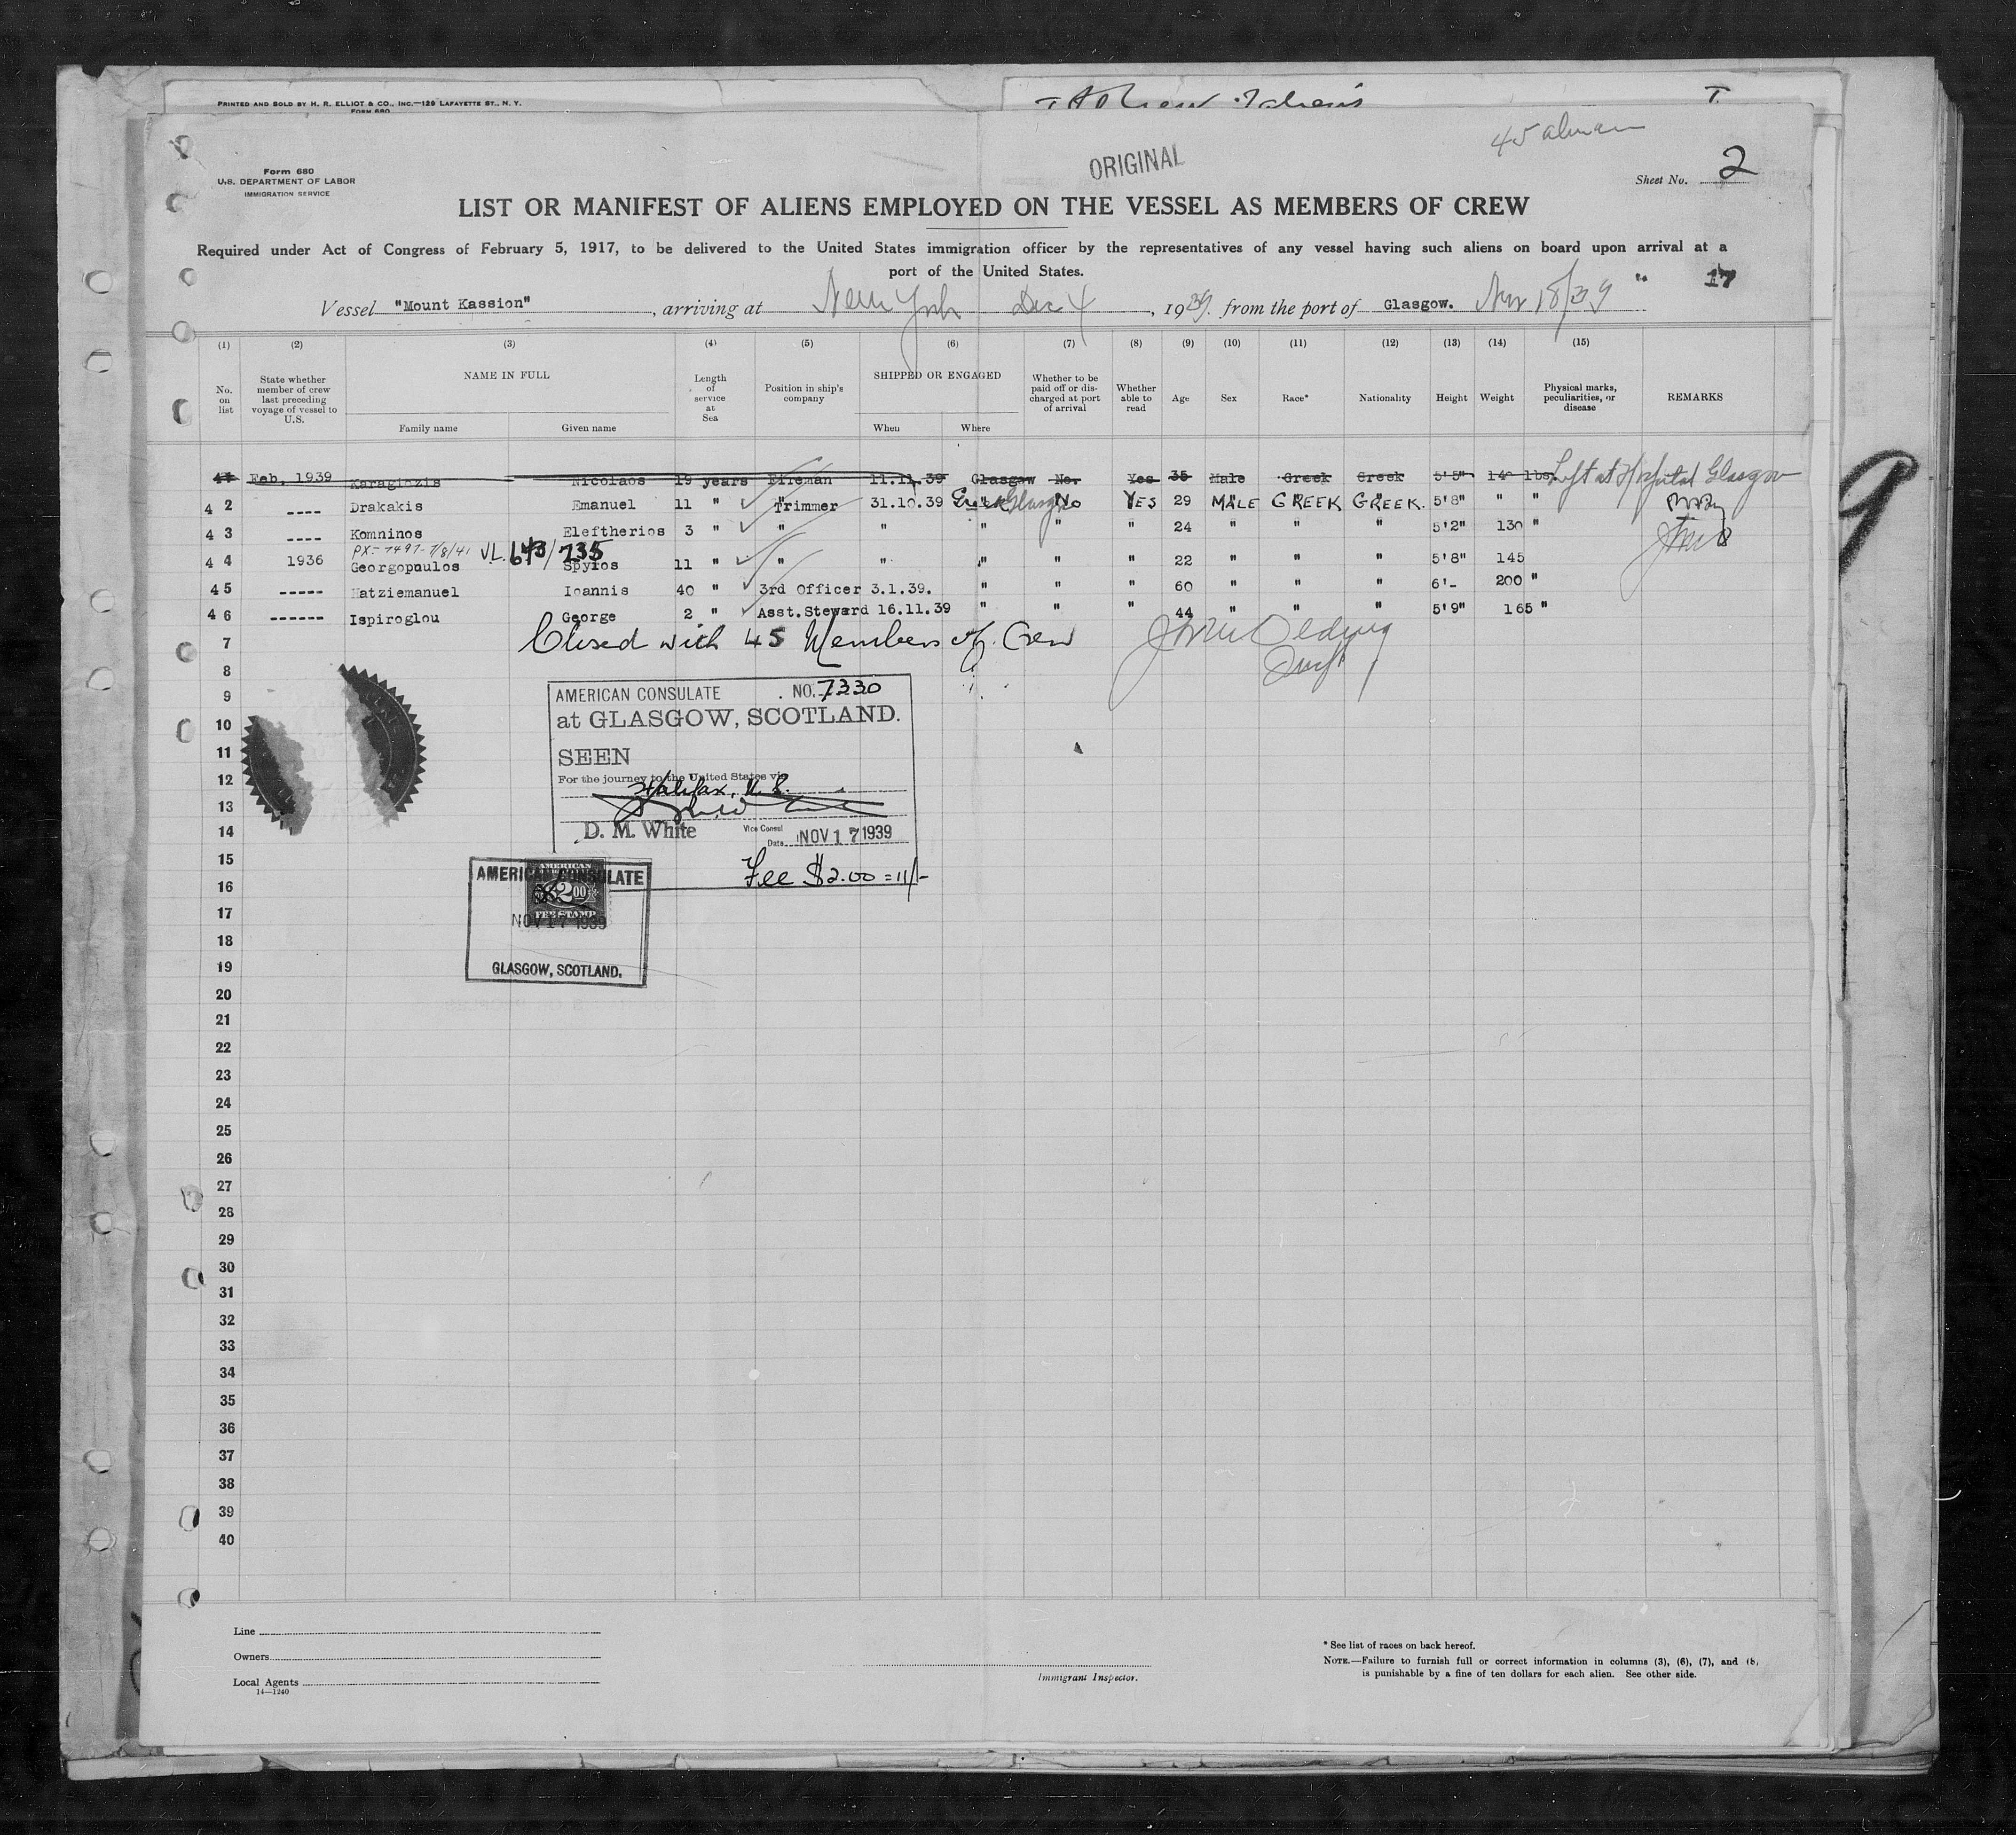 PRINTED AND SOLD BY H. R. ELLIOT & CO., INC.—129 LAFAYETTE ST., N. Y.
FORM 680
45
ORIGINAL
Form 680
U.S. DEPARTMENT OF LABOR
IMMIGRATION SERVICE
Sheet No. 2
LIST OR MANIFEST OF ALIENS EMPLOYED ON THE VESSEL AS MEMBERS OF CREW
Required under Act of Congress of February 5, 1917, to be delivered to the United States immigration officer by the representatives of any vessel having such aliens on board upon arrival at a
port of the United States.
17
Vessel "Mount Kassion", arriving at New York Dec 4, 1939. from the port of Glasgow. Nov 18/39
(1) (2) (3) (4) (5) (6) (7) (8) (9) (10) (11) (12) (13) (14) (15)
No. on list State whether member of crew last preceding voyage of vessel to U.S. NAME IN FULL Length of service at Sea Position in ship's company SHIPPED OR ENGAGED Whether to be paid off or discharged at port of arrival Whether able to read Age Sex Race* Nationality Height Weight Physical marks, peculiarities, or disease REMARKS
Family name Given name When Where
41 Feb, 1939 Karagiozis Nicolaos 19 years Fireman 11.11.39 Glasgow No. Yes 35 Male Greek Greek 5'5" 140 lbs. Left at Hospital Glasgow
42 ---- Drakakis Emanuel 11 " Trimmer 31.10.39 Glasgow No YES 29 MALE GREEK GREEK. 5'8" " "
43 ---- Komninos Eleftherios 3 " " " " " " 24 " " " 5'2" 130 "
PX-7497-7/8/41 V.L. 643/735
44 1936 Georgopoulos Spyros 11 " " " " " " 22 " " " 5'8" 145
45 ----- Hatziemanuel Ioannis 40 " 3rd Officer 3.1.39. " " " 60 " " " 6'- 200 "
46 ------ Ispiroglou George 2 " Asst.Steward 16.11.39 " " " 44 " " " 5'9" 165 "
7 Closed with 45 Members of Crew
8
9
10
11
12
13
14
15
16
17
18
19
20
21
22
23
24
25
26
27
28
29
30
31
32
33
34
35
36
37
38
39
40
AMERICAN CONSULATE NO. 7330
at GLASGOW, SCOTLAND.
SEEN
For the journey to the United States via
Halifax, N.S.
D. M. White Vice Consul
Date NOV 17 1939
Fee $2.00 = 11/-
AMERICAN CONSULATE
AMERICAN
$2.00
FEE STAMP
NOV 17 1939
GLASGOW, SCOTLAND.
Line
Owners
Local Agents
14—1240
Immigrant Inspector.
* See list of races on back hereof.
NOTE.—Failure to furnish full or correct information in columns (3), (6), (7), and (8)
is punishable by a fine of ten dollars for each alien. See other side.
9